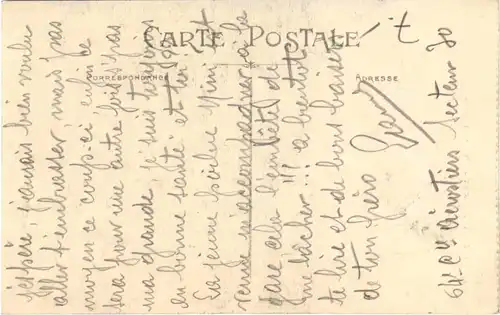 CARTE POSTALE
CORRESPONDANCE
ADRESSE
j'espère, j'aurais bien voulu
aller t'embrasser, mais pas
moyen ce coup-ci enfin ce
sera pour une autre fois, n'pas
ma grande, je suis toujours
en bonne santé et toi
La jeune voisine vient
venue m'accompagner à la
gare cela l'embêtait de
me lâcher !!! a bientot
te lire et de bons baisers
de ton frère
64e Cie Aérostiers Secteur 80